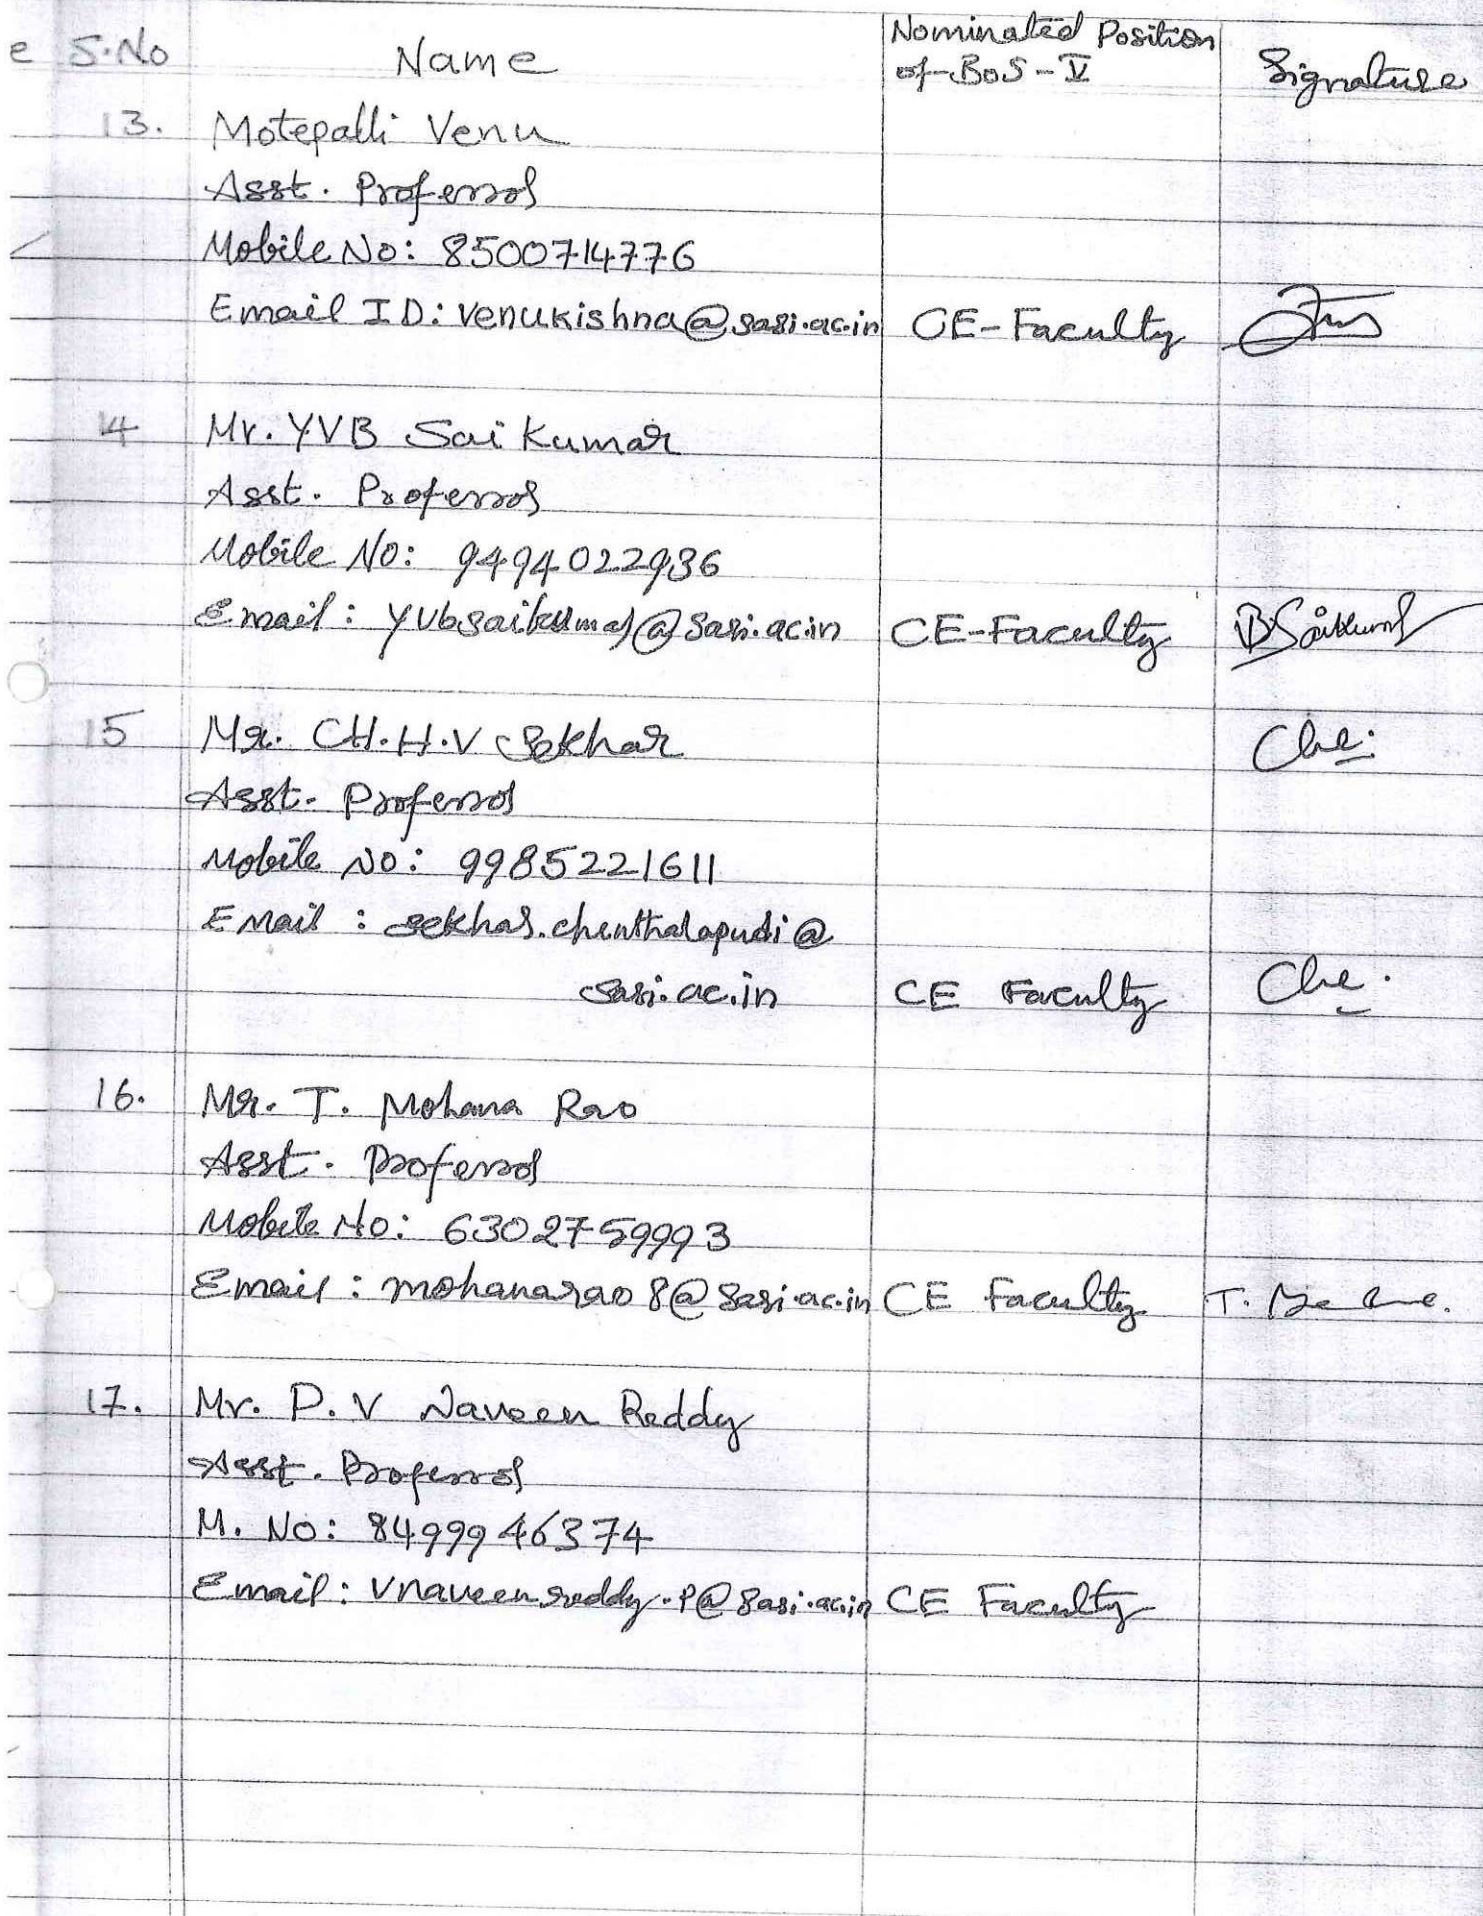 e S.No Name Nominated Position of BoS-V Signature
13. Motepalli Venu
Asst. Professor
Mobile No: 8500714776
Email ID: venukishna@sasi.ac.in CE-Faculty
14 Mr. YVB Sai Kumar
Asst. Professor
Mobile No: 9494022936
Email: yvbsaikumar@sasi.ac.in CE-Faculty
15 Mr. CH.H.V Sekhar
Asst. Professor
Mobile No: 9985221611
EMail : sekhar.chenthalapudi@
sasi.ac.in CE Faculty
16. Mr. T. Mohana Rao
Asst. Professor
Mobile No: 6302759993
Email : mohanarao8@sasi.ac.in CE Faculty
17. Mr. P. V Naveen Reddy
Asst. Professor
M. No: 8499946374
Email: vnaveenreddy.p@sasi.ac.in CE Faculty